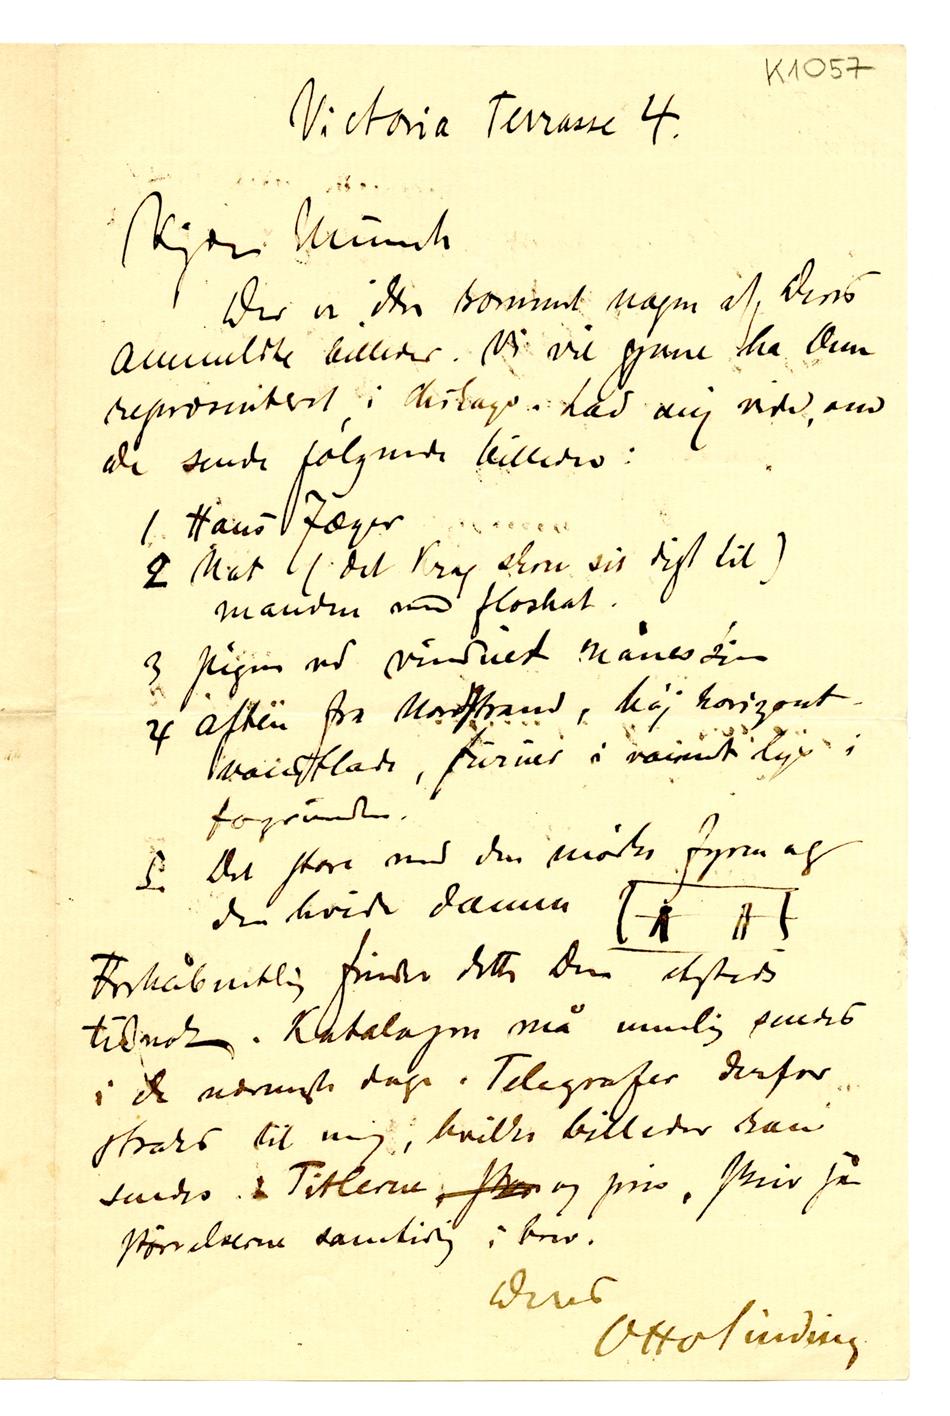 K1057
Victoria Terrasse 4.
Kjære Munch
Der er ikke kommet nogen af Deres
anmeldte billeder. Vi vil gjerne ha Dem
repræsenteret i Chikago. Lad mig vide, om
De sende følgende billeder:
1 Hans Jæger
2 Nat (det Krag skrev sit digt til)
manden med floshat.
3 Pigen ved vinduet måneskin
4 Aften fra Nordstrand, høj horizont
vandflade, furuer i varmt lys i
forgrunden.
5. Det store med den mørke fyren og
den hvide damen
Forhåbentlig finder dette Dem etsteds
tidsnok. Katalogen må nemlig sendes
i de nærmeste dage. Telegrafer derfor
straks til mig, hvilke billeder kan
sendes. Titlerne, og pris, skriv så
størrelserne samtidig i brev.
Deres
Otto Sinding